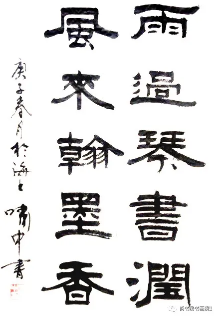 雨過琴書潤
風來翰墨香
庚子春月於海上嘯中書